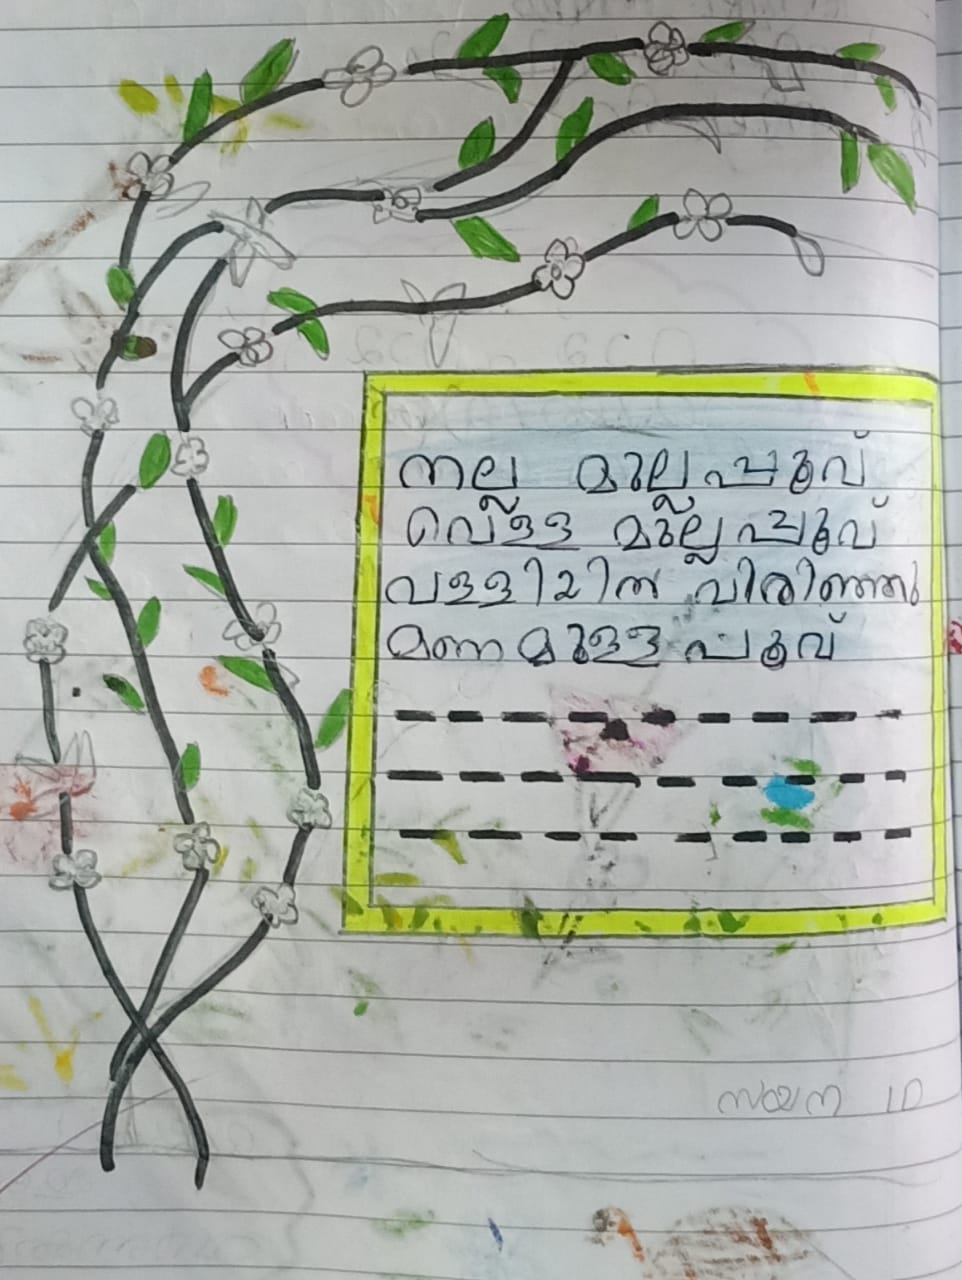 നല്ല മുല്ലപ്പൂവ്
വെള്ള മുല്ലപ്പൂവ്
വള്ളിയിൽ വിരിഞ്ഞു
മണമുള്ള പൂവ്
സയന 1D